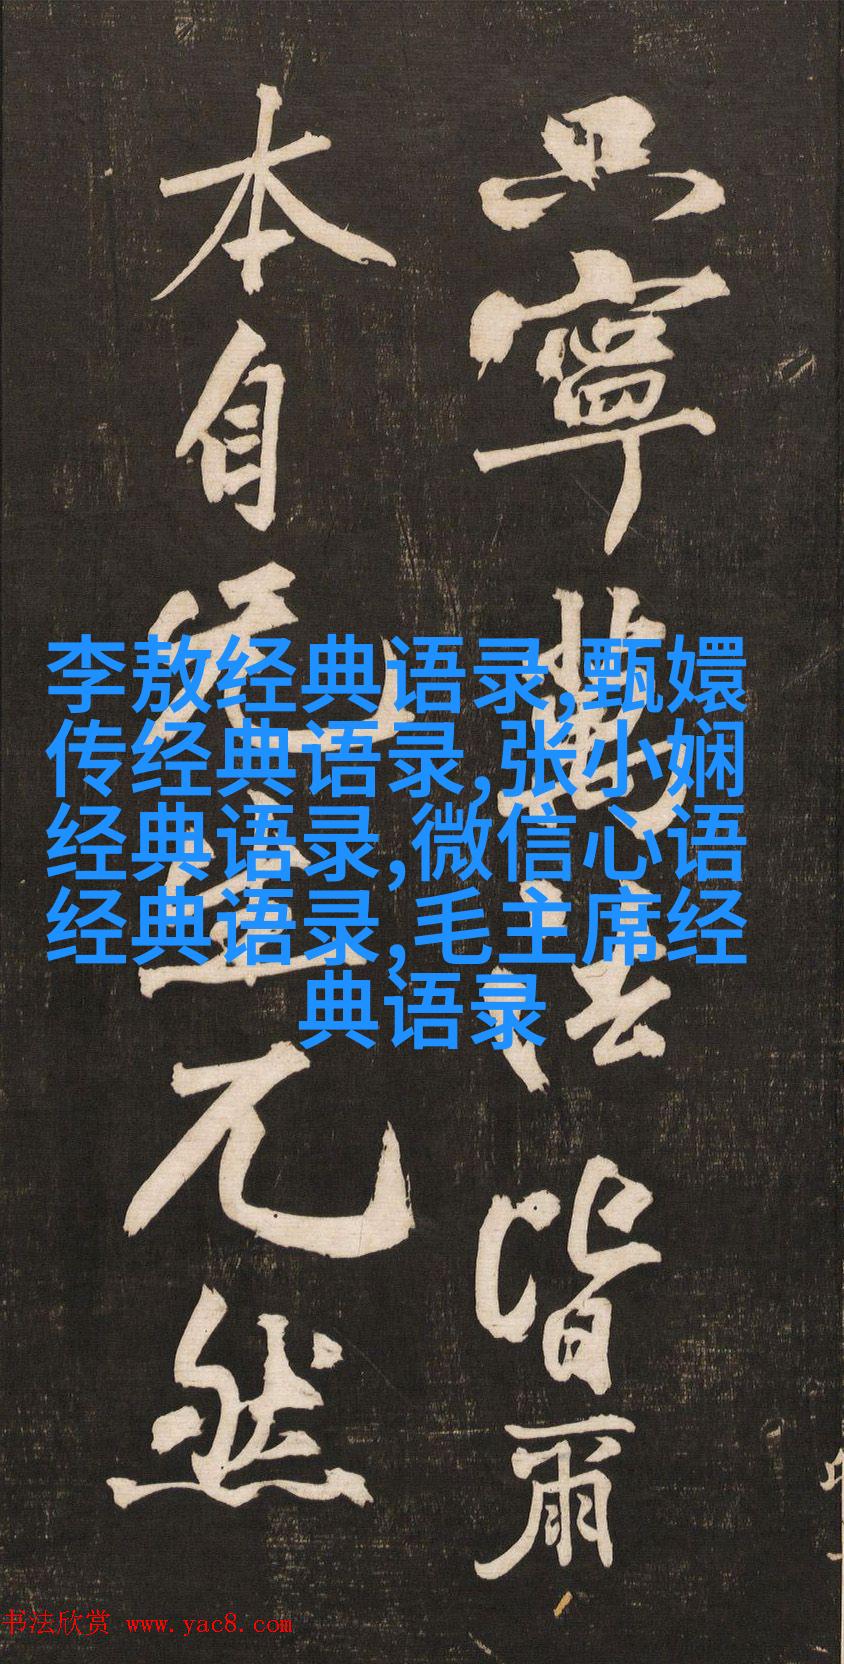 只寧萬法皆爾
本自无生兀然
李敖经典语录,甄嬛
传经典语录,张小娴
经典语录,微信心语
经典语录,毛主席经
典语录
书法欣赏 www.yac8.com